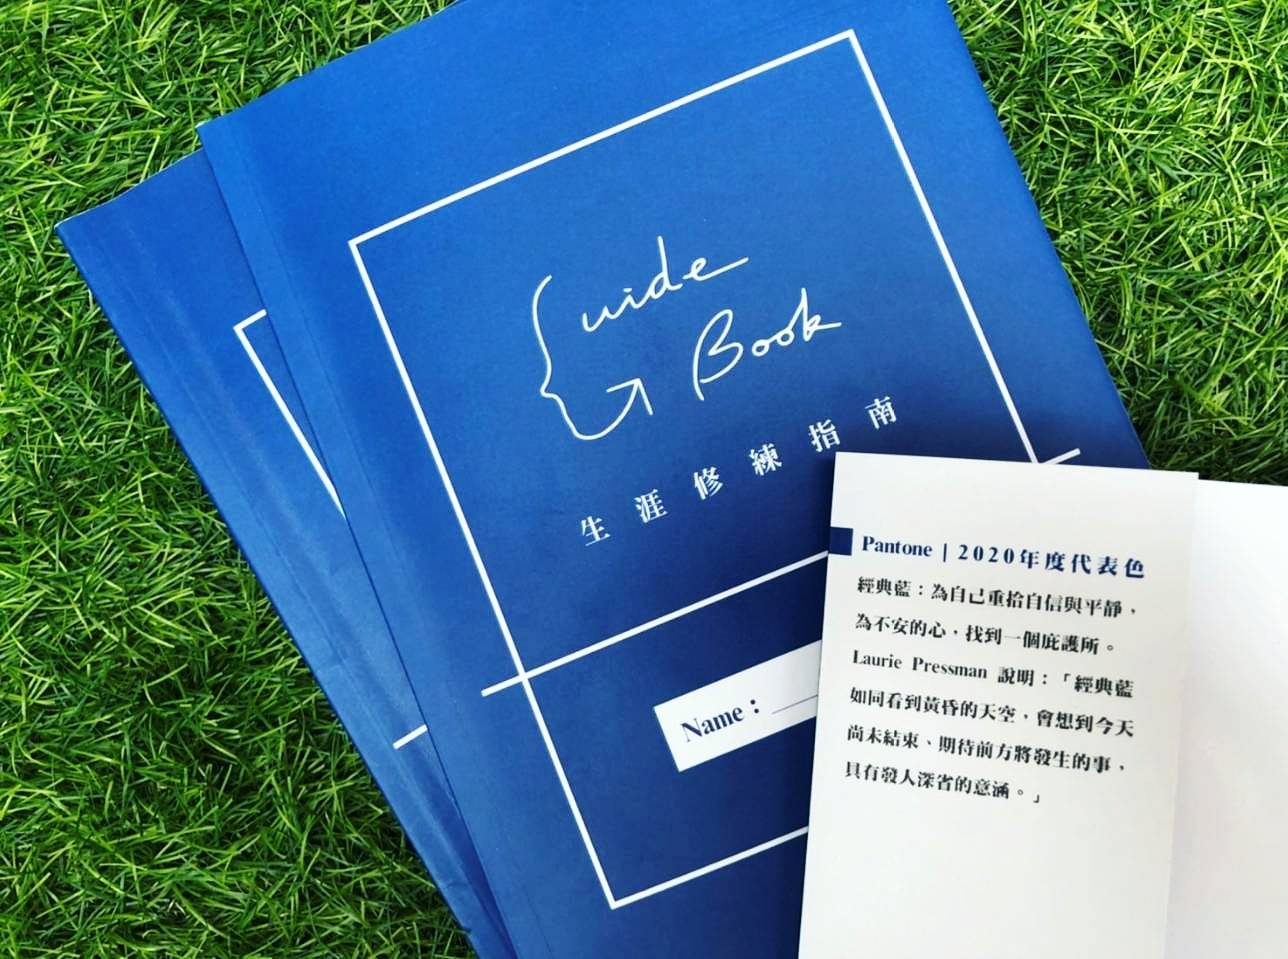 Guide
Book
生涯修練指南
Name：
Pantone | 2020年度代表色
經典藍：為自己重拾自信與平靜，
為不安的心，找到一個庇護所。
Laurie Pressman 說明：「經典藍
如同看到黃昏的天空，會想到今天
尚未結束、期待前方將發生的事，
具有發人深省的意涵。」